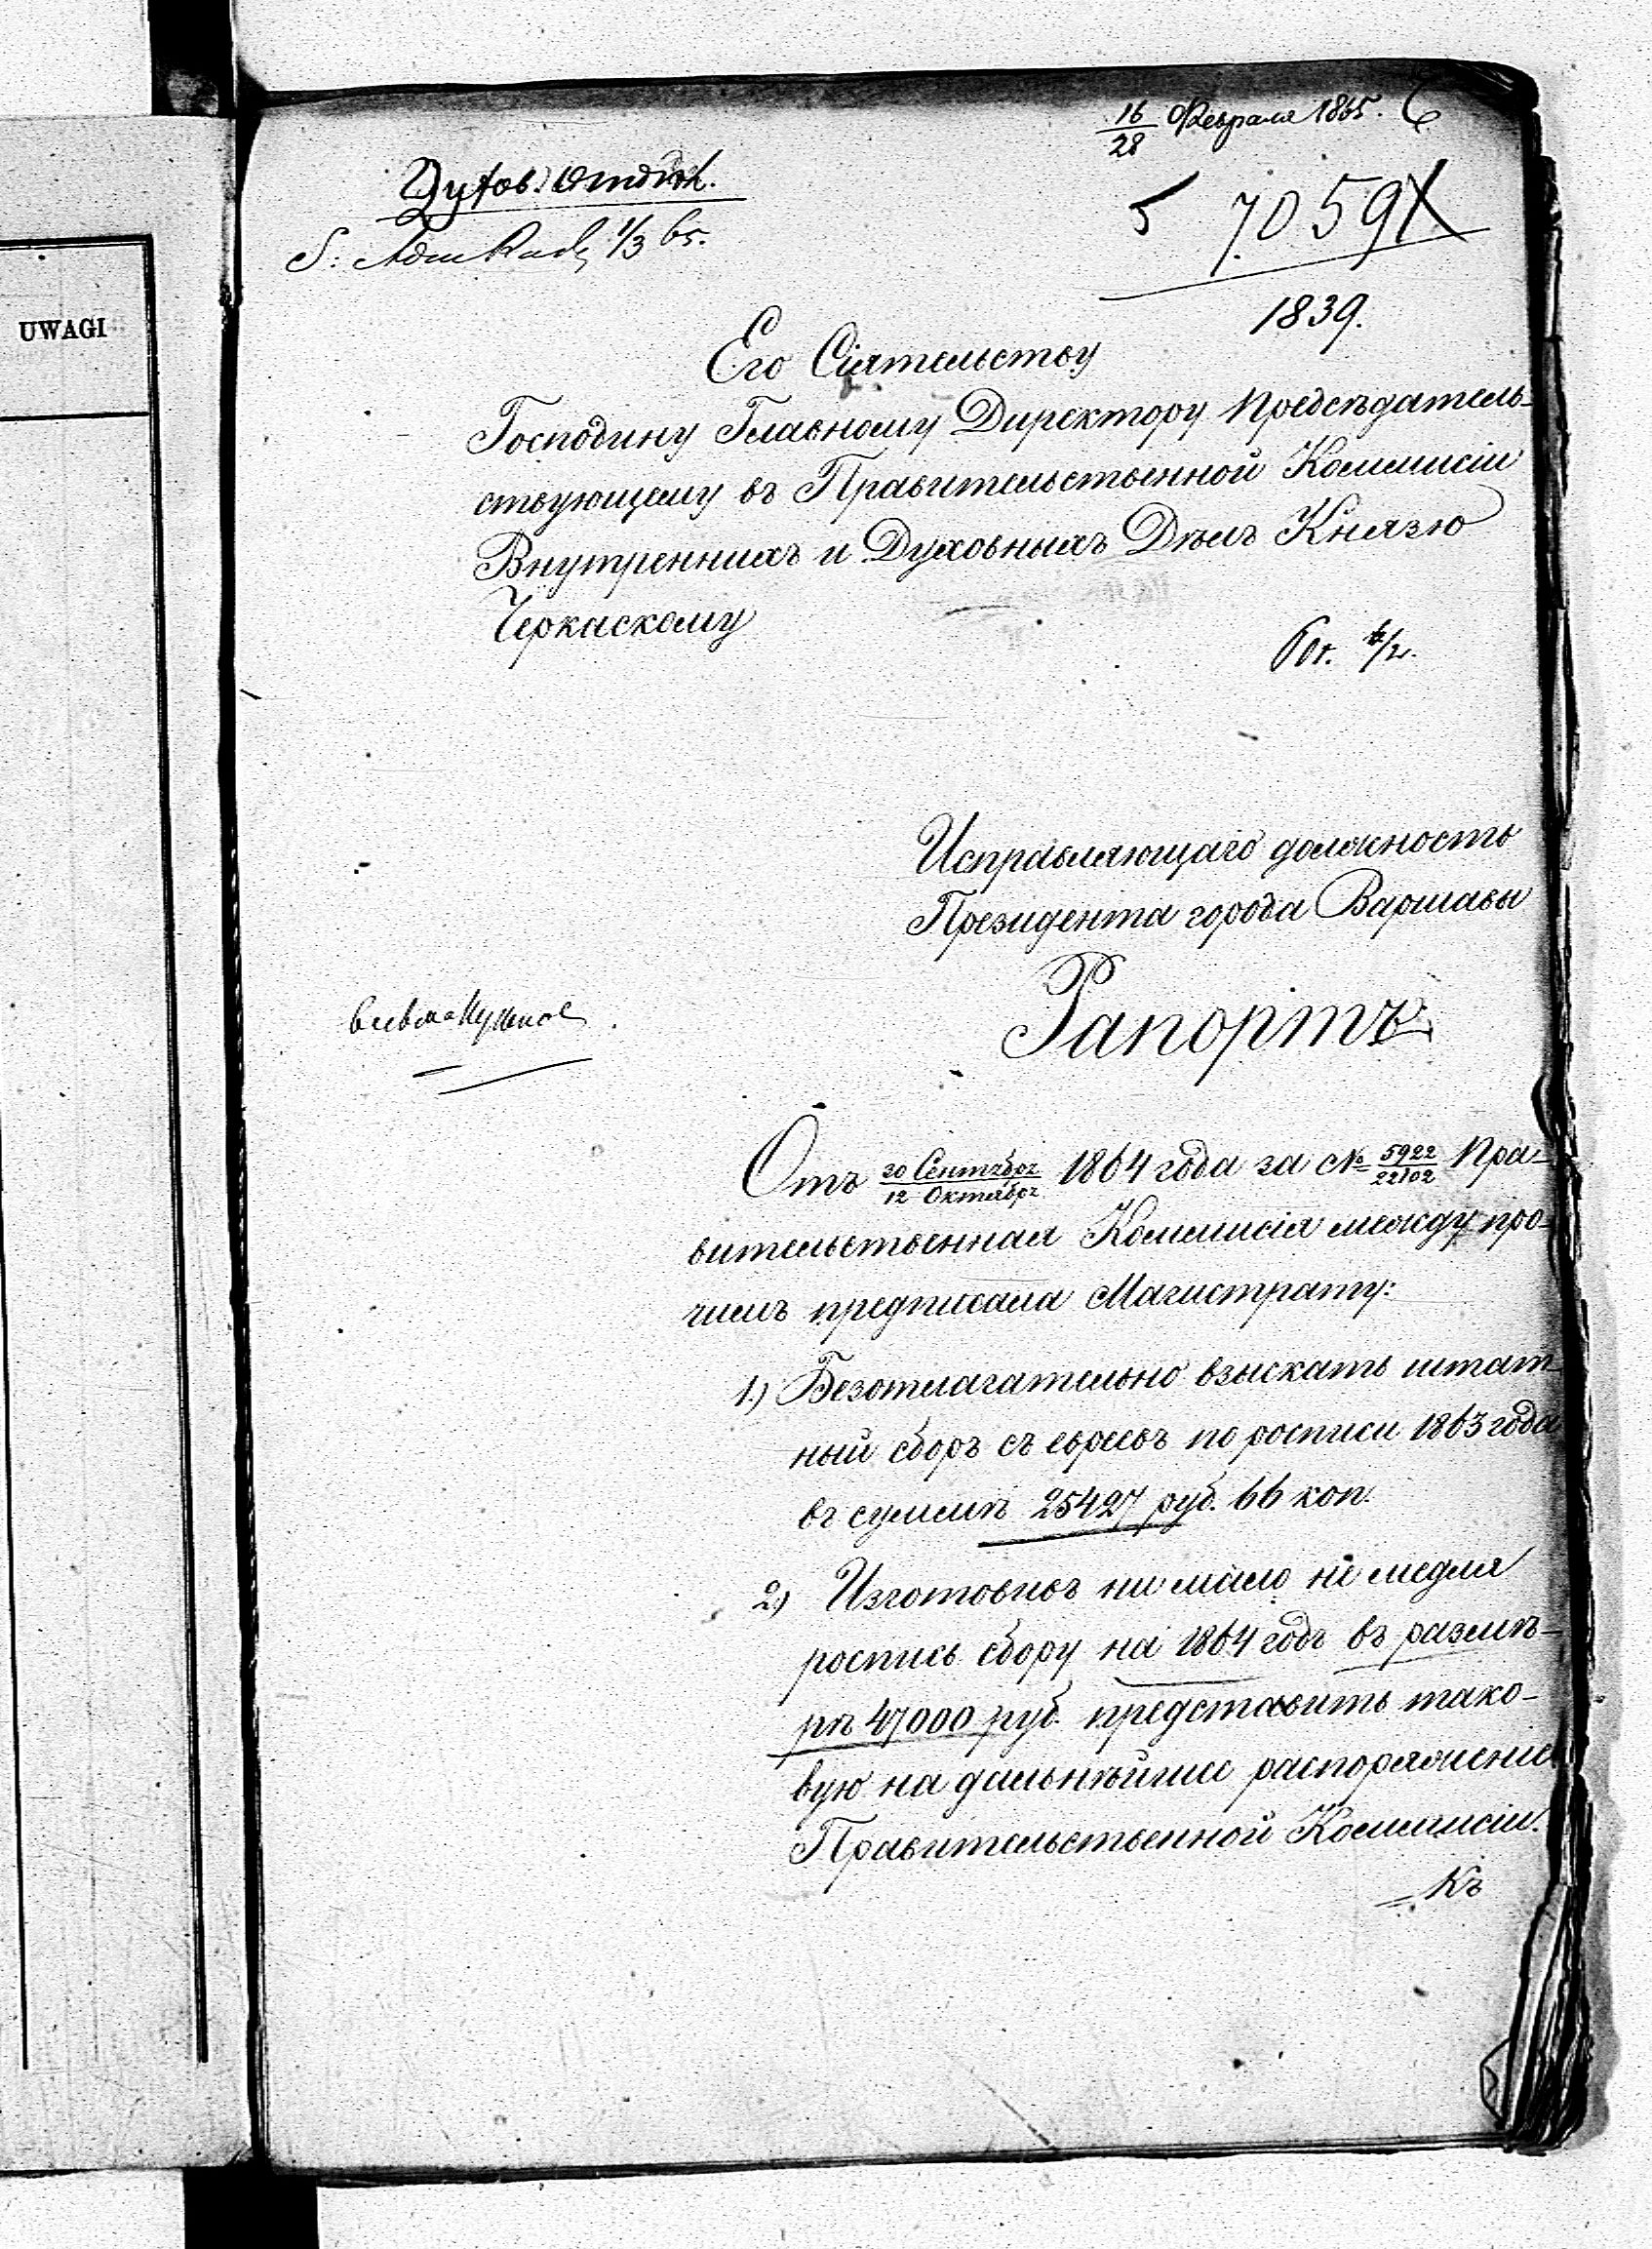 UWAGI
16/28 Февраля 1865.
Духов. Отдѣл.
1/3 65.
5 7059
1839.
Его Сіятельству
Господину Главному Директору Предсѣдатель-
ствующему въ Правительственной Коммисіи
Внутреннихъ и Духовныхъ Дѣлъ Князю
Черкаскому
Исправляющаго должность
Президента города Варшавы
Рапортъ
Отъ 30 Сентября/12 Октября 1864 года за № 5922/22102 Пра-
вительственная Коммисія между про-
чимъ предписала Магистрату:
1.) Безотлагательно взыскать штат-
ный сборъ съ евреевъ по росписи 1863 года
въ суммѣ 25427 руб. 66 коп.
2) Изготовивъ ни мало не медля
роспись сбору на 1864 годъ въ размѣ-
рѣ 47000 руб. представить тако-
вую на дальнѣйшее распоряженіе
Правительственной Коммисіи.
Къ